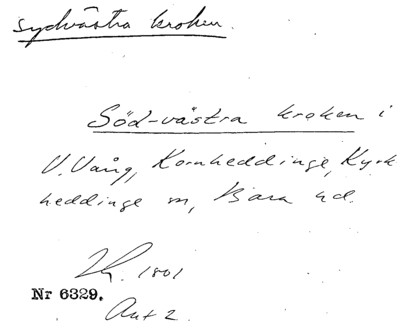 sydvästra kroken.
Söd-västra kroken i
V. Vång, Kornheddinge, Kyrk
heddinge sn, Bara hd.
1801
Nr 6329.
Akt 2.